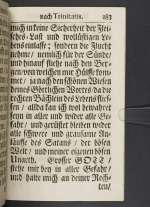 nach Trinitatis. 283
mich in keine Sicherheit der Flei-
sches-Lust und wollüstigen Le-
bens einlasse; sondern die Flucht
nehme/ nemlich für der Sünde/
und hinauf fliehe nach den Ber-
gen/ von welchen mir Hülffe kom-
met/ ja nach den schönen Wiesen
deines Göttlichen Wortes/ da die
rechten Bächlein des Lebens flies-
sen/ allda kan ich wol bewahret
seyn in aller und wider alle Ge-
fahr/ und gerüstet bleiben wider
alle schwere und grausame An-
läuffe des Satans/ der bösen
Welt/ und meiner eigenen bösen
Unarth. Grosser GOTT/
stehe mir bey in aller Gefahr/
und halte mich an deiner Rech-
ten/